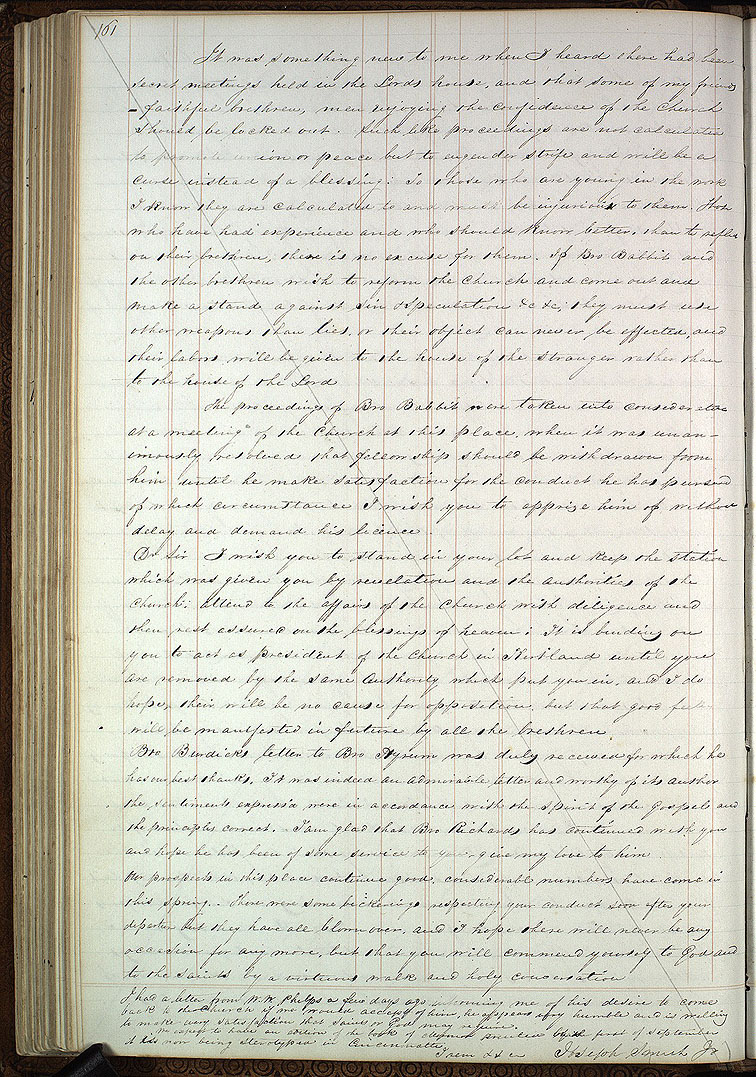 161
It was something new to me when I heard there had been
secret meetings held in the Lords house, and that some of my friends
- faithful brethren, men enjoying the confidence of the Church
should be locked out. Such like proceedings are not calculated
to promote union or peace but to engender strife and will be a
curse instead of a blessing: To those who are young in the work
I know they are calculated to and must be injurious to them. Those
who have had experience and who should know better, than to reflect
on their brethren, there is no excuse for them. If Bro Babbit and
the other brethren wish to reform the Church and come out and
make a stand against sin & speculation &c &c, they must use
other weapons than lies, or their object can never be effected, and
their labors will be given to the house of the stranger rather than
to the house of the Lord
The proceedings of Bro Babbit were taken into consideration
at a meeting of the Church at this place, when it was unan-
imously resolved that fellowship should be withdrawn from
him until he make satisfaction for the conduct he has pursued
of which circumstance I wish you to apprise him of without
delay and demand his licence.
Dr Sir I wish you to stand in your lot and keep the station
which was given you by revelation and the authorities of the
Church: attend to the affairs of the Church with diligence and
then rest assured on the blessings of heaven; It is binding on
you to act as president of the Church in Kirtland until you
are removed by the same Authority which put you in, and I do
hope, their will be no cause for opposition, but that good
will be manifested in future by all the brethren
Bro Burdicks letter to Bro Hyrum was duly received for which he
has our best thanks, It was indeed an admirable letter and worthy of its author
the sentiments expressed were in accordance with the spirit of the Gospels and
the principles correct. I am glad that Bro Richards has continued with you
and hope he has been of some service to you, give my love to him.
Our prospects in this place continue good, considerable numbers have come in
this spring. There were some bickerings respecting your conduct soon after your
departure but they have all blown over, and I hope there will never be any
occasion for any more, but that you will commend yourself to God and
to the saints by a virtuous walk and holy conversation
I had a letter from W. W. Phelps a few days ago informing me of his desire to come
back to the Church if we would accept of him, he appears very humble and is willing
to make every satisfaction that Saints or God may require.
We expect to have an edition of the book of Mormon printed by the first of September
it is now being stereotyped in Cincinnatti
I am &c &c Joseph Smith Jr